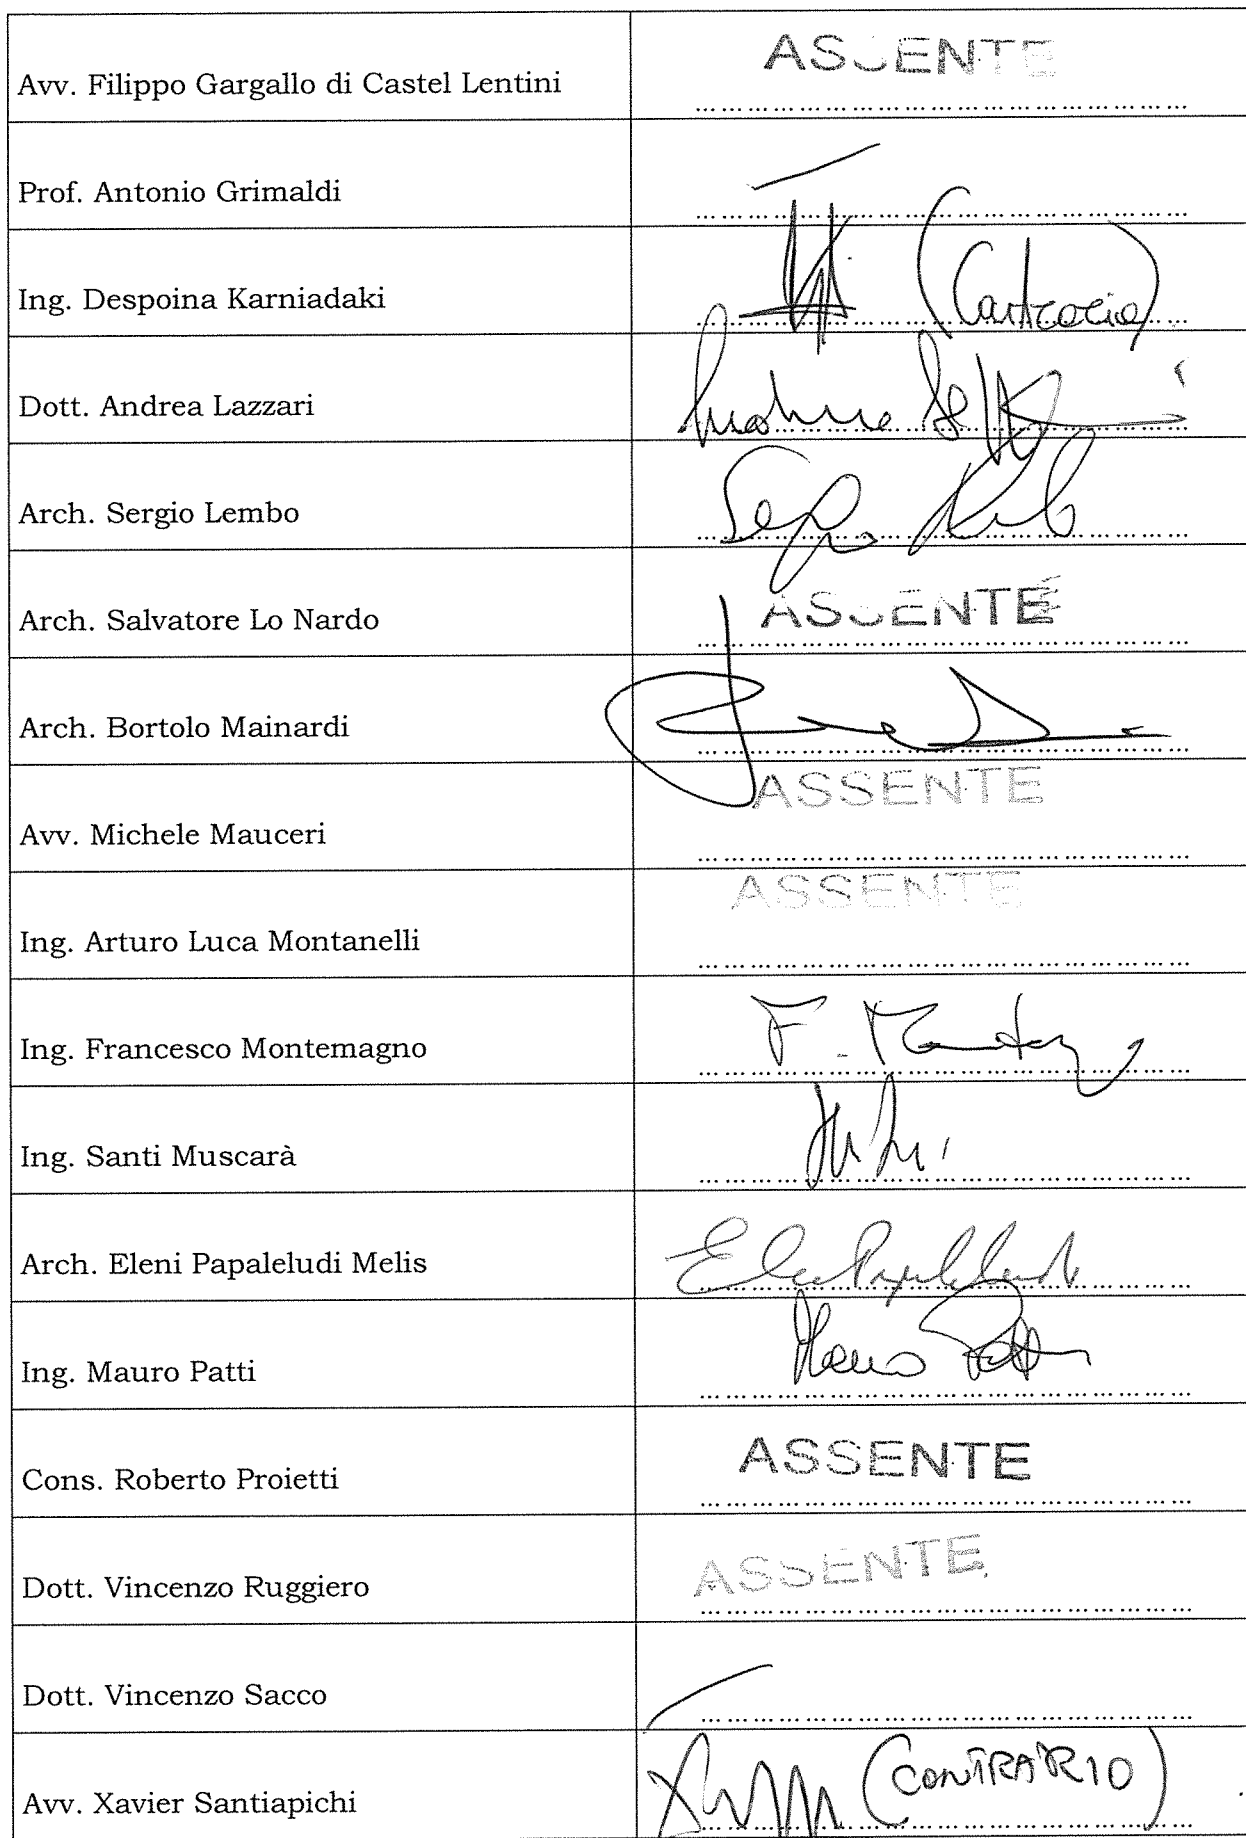 Avv. Filippo Gargallo di Castel Lentini ASSENTE
Prof. Antonio Grimaldi
Ing. Despoina Karniadaki (Contraria)
Dott. Andrea Lazzari
Arch. Sergio Lembo
Arch. Salvatore Lo Nardo ASSENTE
Arch. Bortolo Mainardi
Avv. Michele Mauceri ASSENTE
Ing. Arturo Luca Montanelli ASSENTE
Ing. Francesco Montemagno
Ing. Santi Muscarà
Arch. Eleni Papaleludi Melis
Ing. Mauro Patti Mauro Patti
Cons. Roberto Proietti ASSENTE
Dott. Vincenzo Ruggiero ASSENTE
Dott. Vincenzo Sacco
Avv. Xavier Santiapichi (CONTRARIO)